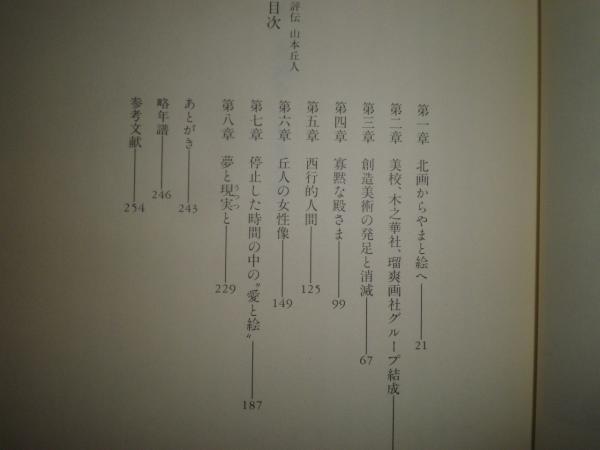 評伝 山本丘人
目次
第一章 北画からやまと絵へ 21
第二章 美校、木之華社、瑠爽画社グループ結成
第三章 創造美術の発足と消滅 67
第四章 寡黙な殿さま 99
第五章 西行的人間 125
第六章 丘人の女性像 149
第七章 停止した時間の中の〝愛と絵〟 187
第八章 夢と現実と 229
うつつ
あとがき 243
略年譜 246
参考文献 254